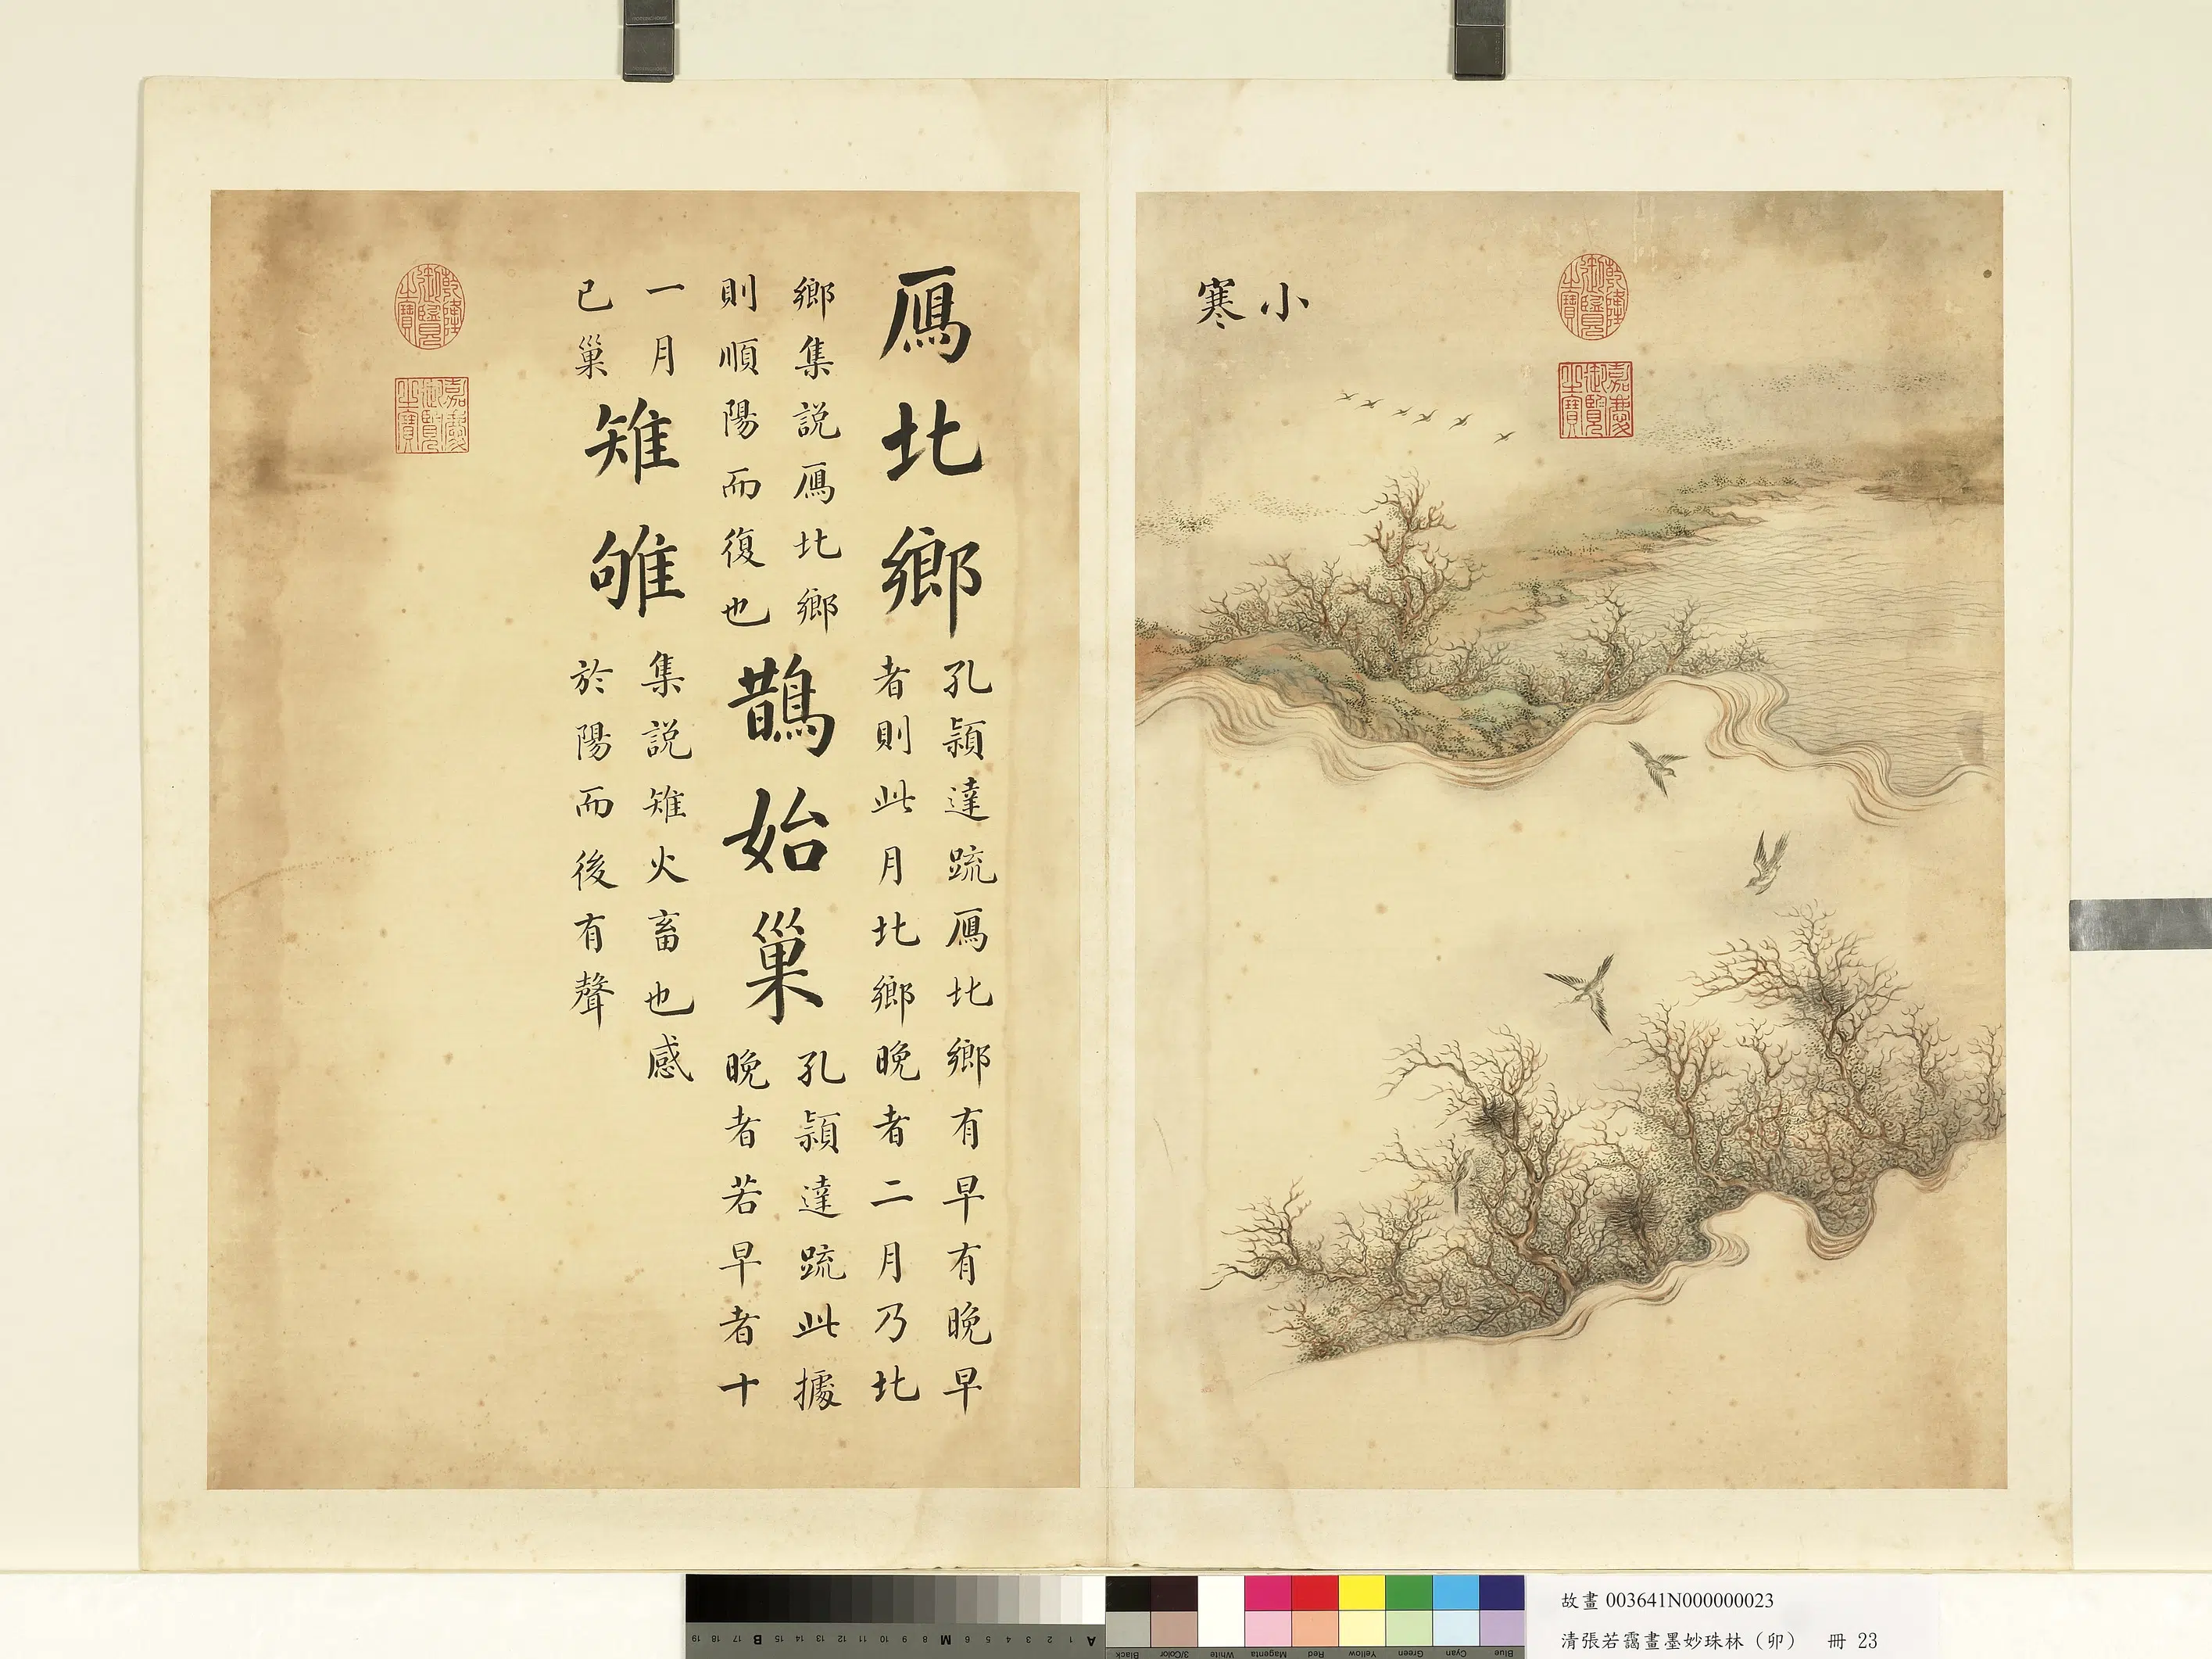 小寒
乾隆御覽之寶
嘉慶御覽之寶
鴈北鄉
孔頴達疏鴈北鄉有早有晚早
者則此月北鄉晚者二月乃北
鄉集説鴈北鄉
則順陽而復也
鵲始巢
孔頴達疏此據
晚者若早者十
一月
已巢
雉雊
集説雉火畜也感
於陽而後有聲
乾隆御覽之寶
嘉慶御覽之寶
故畫 003641N000000023
清張若靄畫墨妙珠林（卯） 冊 23
A 1 2 3 4 5 6 M 8 9 10 11 12 13 14 15 B 17 18 19
Blue Cyan Green Yellow Red Magenta White 3/Color Black